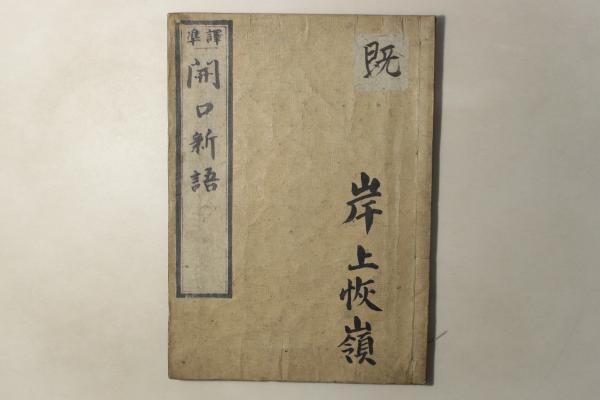 既
岸上恢嶺
譯準
開口新語